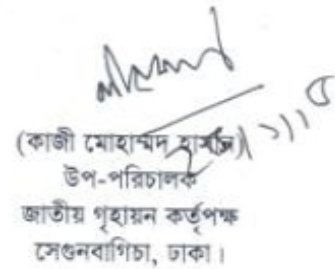 (কাজী মোহাম্মদ হাসান)
উপ-পরিচালক
জাতীয় গৃহায়ন কর্তৃপক্ষ
সেগুনবাগিচা, ঢাকা।